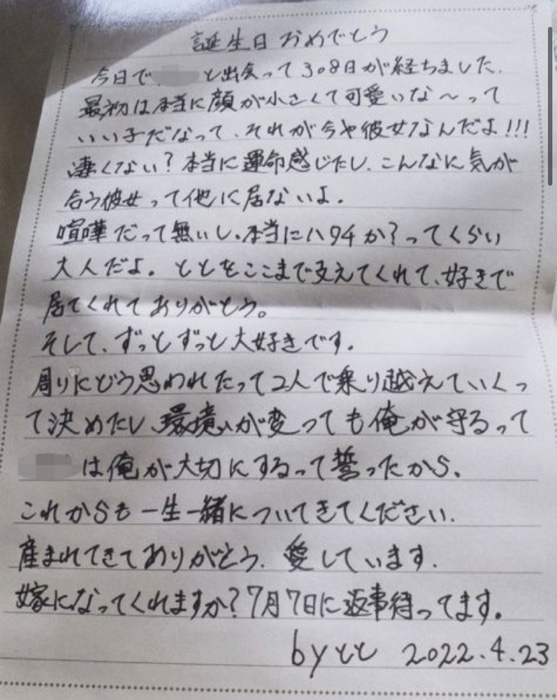 誕生日おめでとう
今日で と出会って308日が経ちました.
最初は本当に顔が小さくて可愛いな〜って
いい子だなって、それが今や彼女なんだよ!!!
凄くない?本当に運命感じたし、こんなに気が
合う彼女って他に居ないよ.
喧嘩だって無いし、本当にハタチか?ってくらい
大人だよ。ととをここまで支えてくれて、好きで
居てくれてありがとう。
そして、ずっとずっと大好きです.
周りにどう思われたって2人で乗り越えていくっ
て決めたし、環境が変っても俺が守るって
は俺が大切にするって誓ったから、
これからも一生一緒についてきてください.
産まれてきてありがとう. 愛しています.
嫁になってくれますか?7月7日に返事待ってます。
by とと 2022.4.23